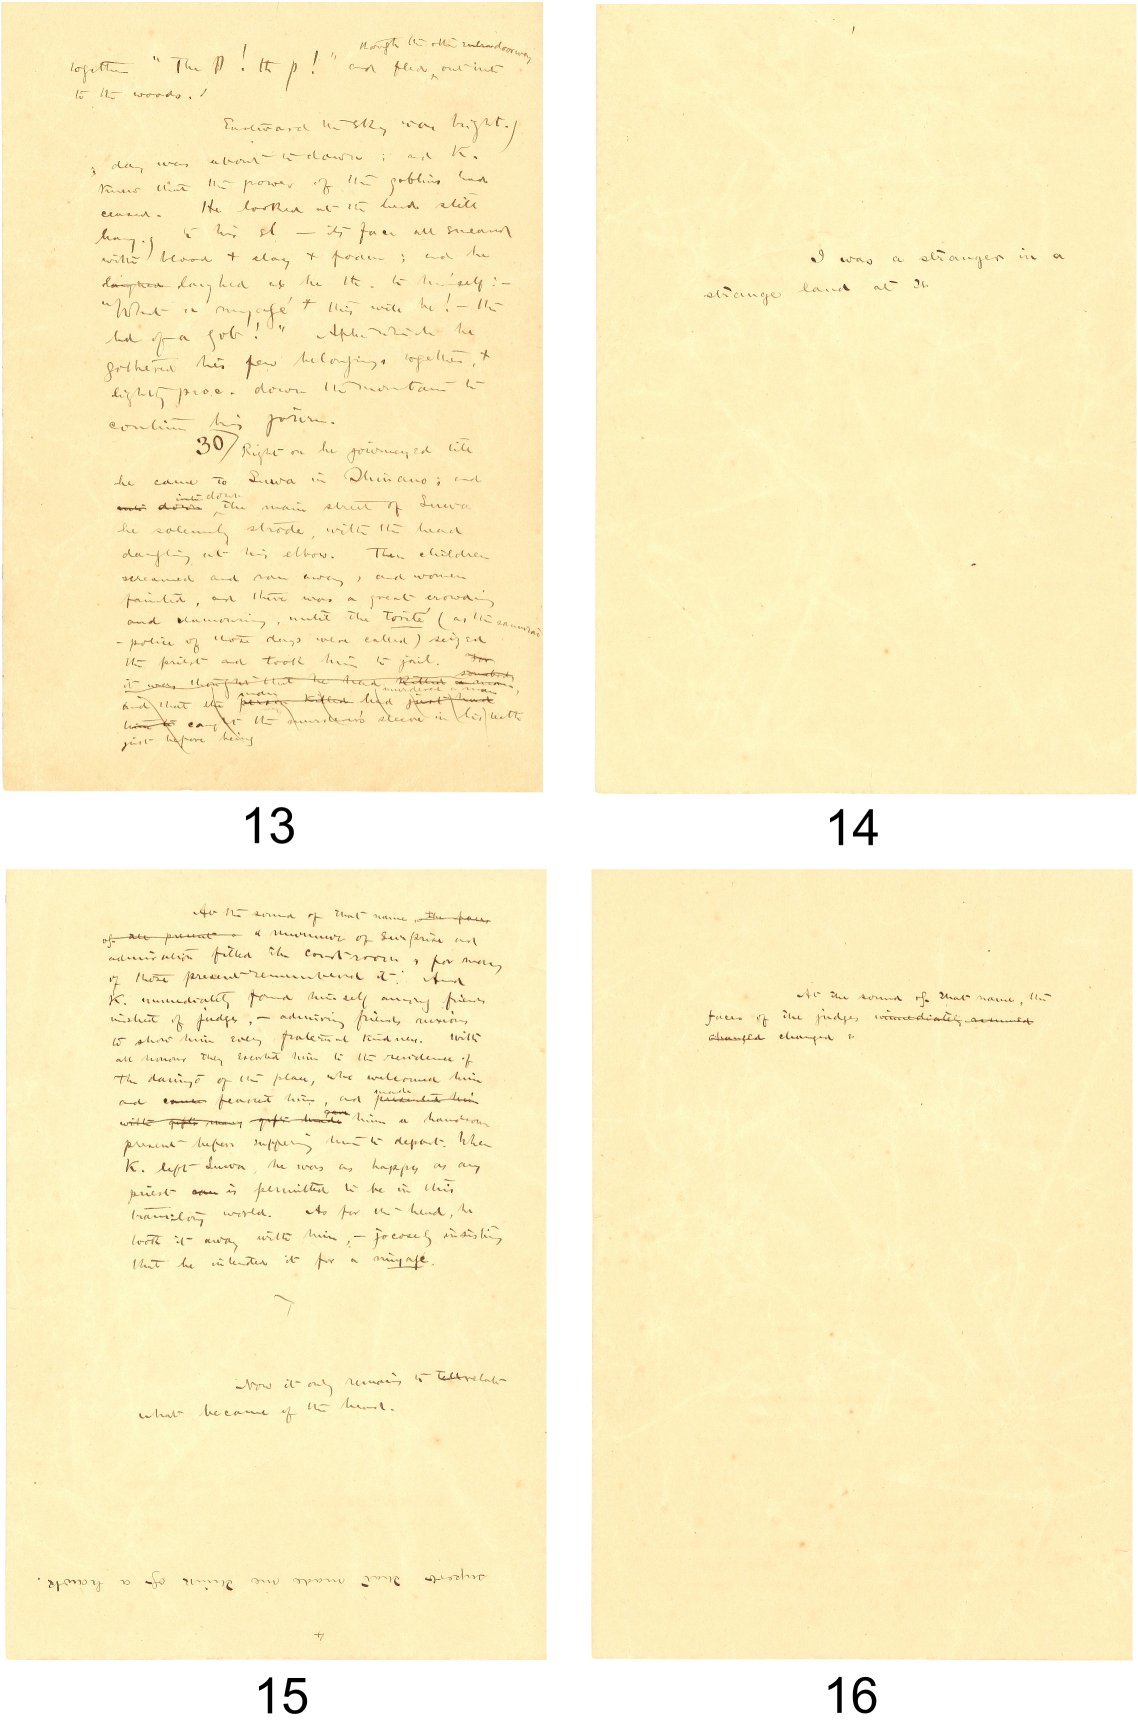 through the other
together "The p! th p!" and fled out into
to the woods.
Eastward the sky was bright.)
; day was about to dawn ; and K.
knew that the power of the goblins had
ceased. He looked at the head still
hang.g to his sl — its face all smeared
with blood + clay + foam ; and he
laughed laughed as he th. to himself : —
"What a miyagé + this with he! — the
hd of a gob!" After which he
gathered his few belongings together, +
lightly proc. down the mountain to
continue his journ.
30/ Right on he journeyed till
he came to Suwa in Shinano ; and
into down
into down the main street of Suwa
he solemnly strode, with the head
dangling at his elbow. Then children
screamed and ran away, and women
fainted, and there was a great crowding
and clamouring, until the torité (as the samurai
-police of those days were called) seized
the priest and took him to jail. For
somebody
it was thought that he had killed a man,
man murdered a man
and that the person killed had just had
caught the murderer's sleeve in his teeth
just before being
13
I was a stranger in a
strange land at
14
At the sound of that name, the faces
of all present a murmur of surprise and
admiration filled the court-room ; for many
of those present remembered it. And
K. immediately found himself among friends
instead of judges, — admiring friends anxious
to show him every fraternal kindness. With
all honour they escorted him to the residence of
the daimyō of the place, who welcomed him
made
and feasted him, and presented him
gave
with gifts many gifts made him a handsome
present before suffering him to depart. When
K. left Suwa, he was as happy as any
priest can is permitted to be in this
transitory world. As for the head, he
took it away with him, — jocosely insisting
that he intended it for a miyagé.
Now it only remains to tell relate
what became of the head.
that made me think of a hawk.
4
15
At the sound of that name, the
faces of the judges immediately assumed
changed changed
16